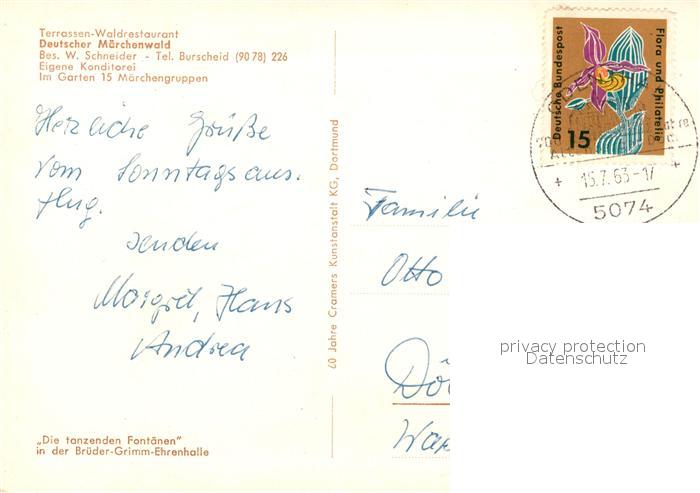 Terrassen-Waldrestaurant
Deutscher Märchenwald
Bes. W. Schneider - Tel. Burscheid (90 78) 226
Eigene Konditorei
Im Garten 15 Märchengruppen
Herzliche Grüße
vom Sonntagsaus-
flug.
senden
Margret, Hans
Andrea
„Die tanzenden Fontänen"
in der Brüder-Grimm-Ehrenhalle
60 Jahre Cramers Kunstanstalt KG, Dortmund
Deutsche Bundespost
Flora und Philatelie
15
15.7.63-17
5074
Familie
Otto
privacy protection
Datenschutz